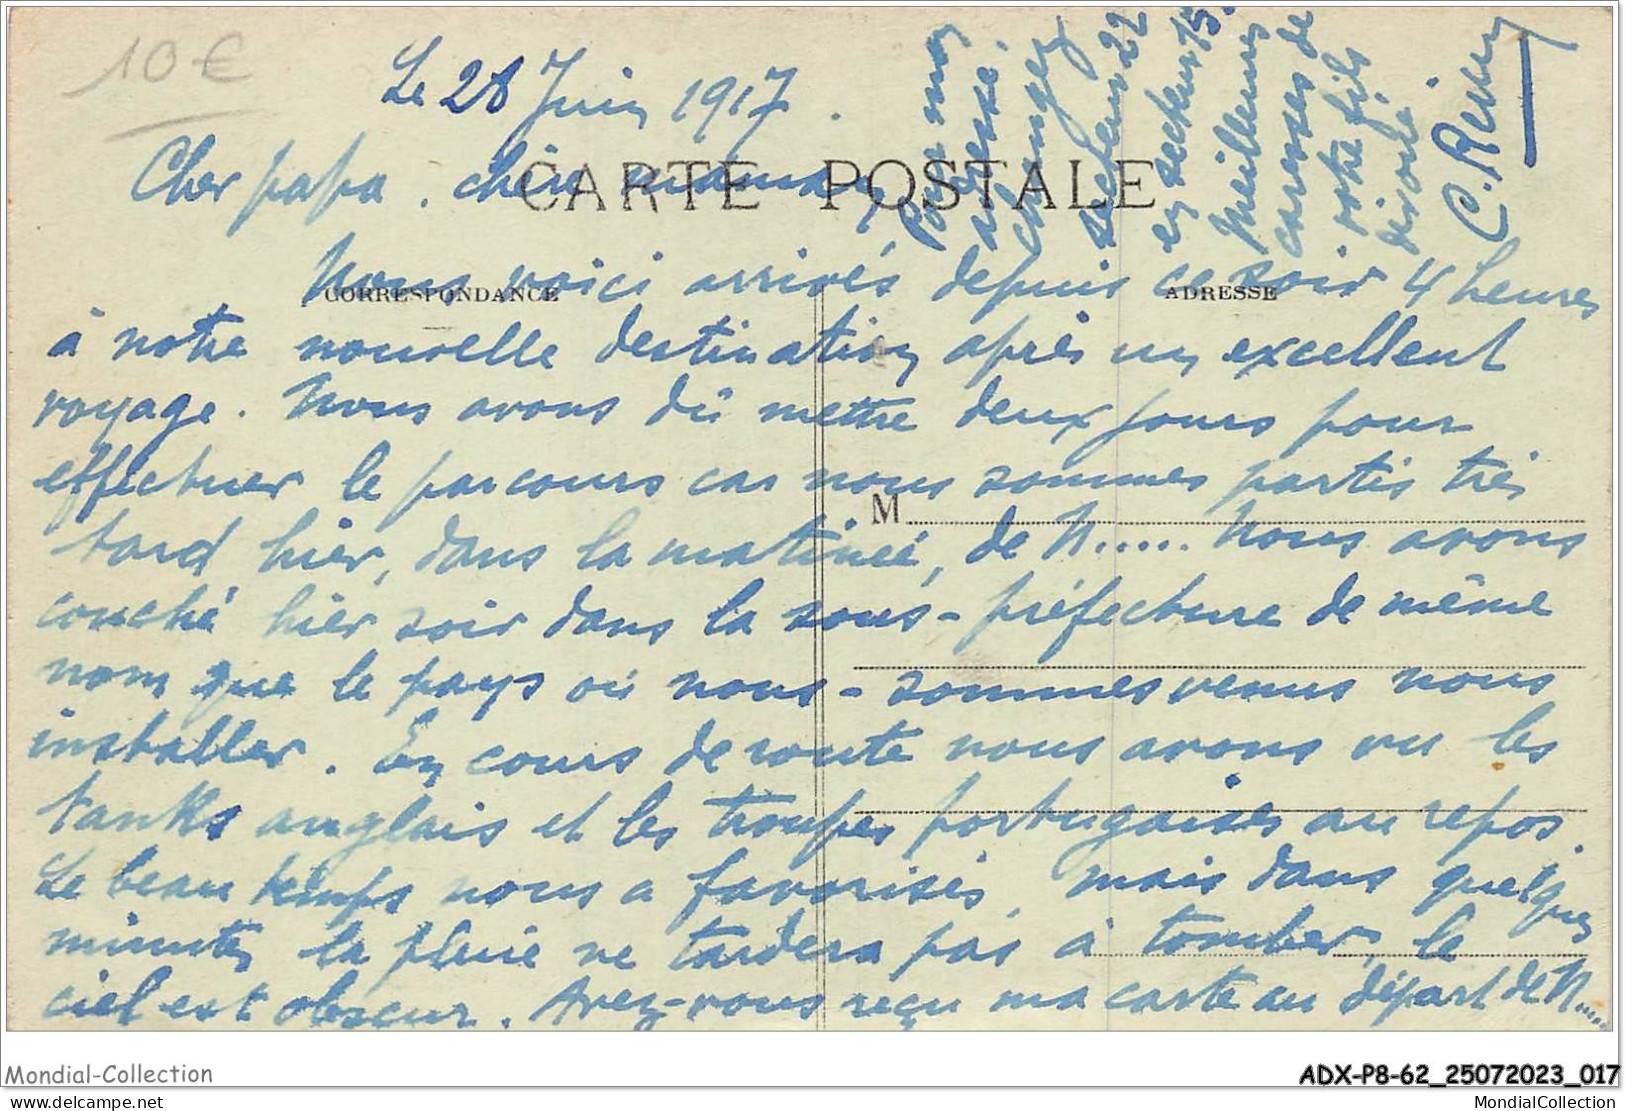 10€
Le 28 Juin 1917.
Cher papa. chère maman
CARTE POSTALE
CORRESPONDANCE
ADRESSE
M
Nous voici arrivés depuis ce soir 4 heures
à notre nouvelle destination après un excellent
voyage. Nous avons dû mettre deux jours pour
effectuer le parcours car nous sommes partis très
tard hier, dans la matinée, de N..... Nous avons
couché hier soir dans la sous-préfecture de même
nom que le pays où nous-sommes venus nous
installer. En cours de route nous avons vu les
tanks anglais et les troupes portugaises au repos.
Le beau temps nous a favorisés, mais dans quelques
minutes la pluie ne tardera pas à tomber, le
ciel est obscur. Avez-vous reçu ma carte au départ de N.....
Pour mon
adresse.
changez
secteur 22
en secteur 15.
Meilleures
caresses de
votre fils
dévoué.
C.
Mondial-Collection
ADX-P8-62_25072023_017
delcampe.net
MondialCollection